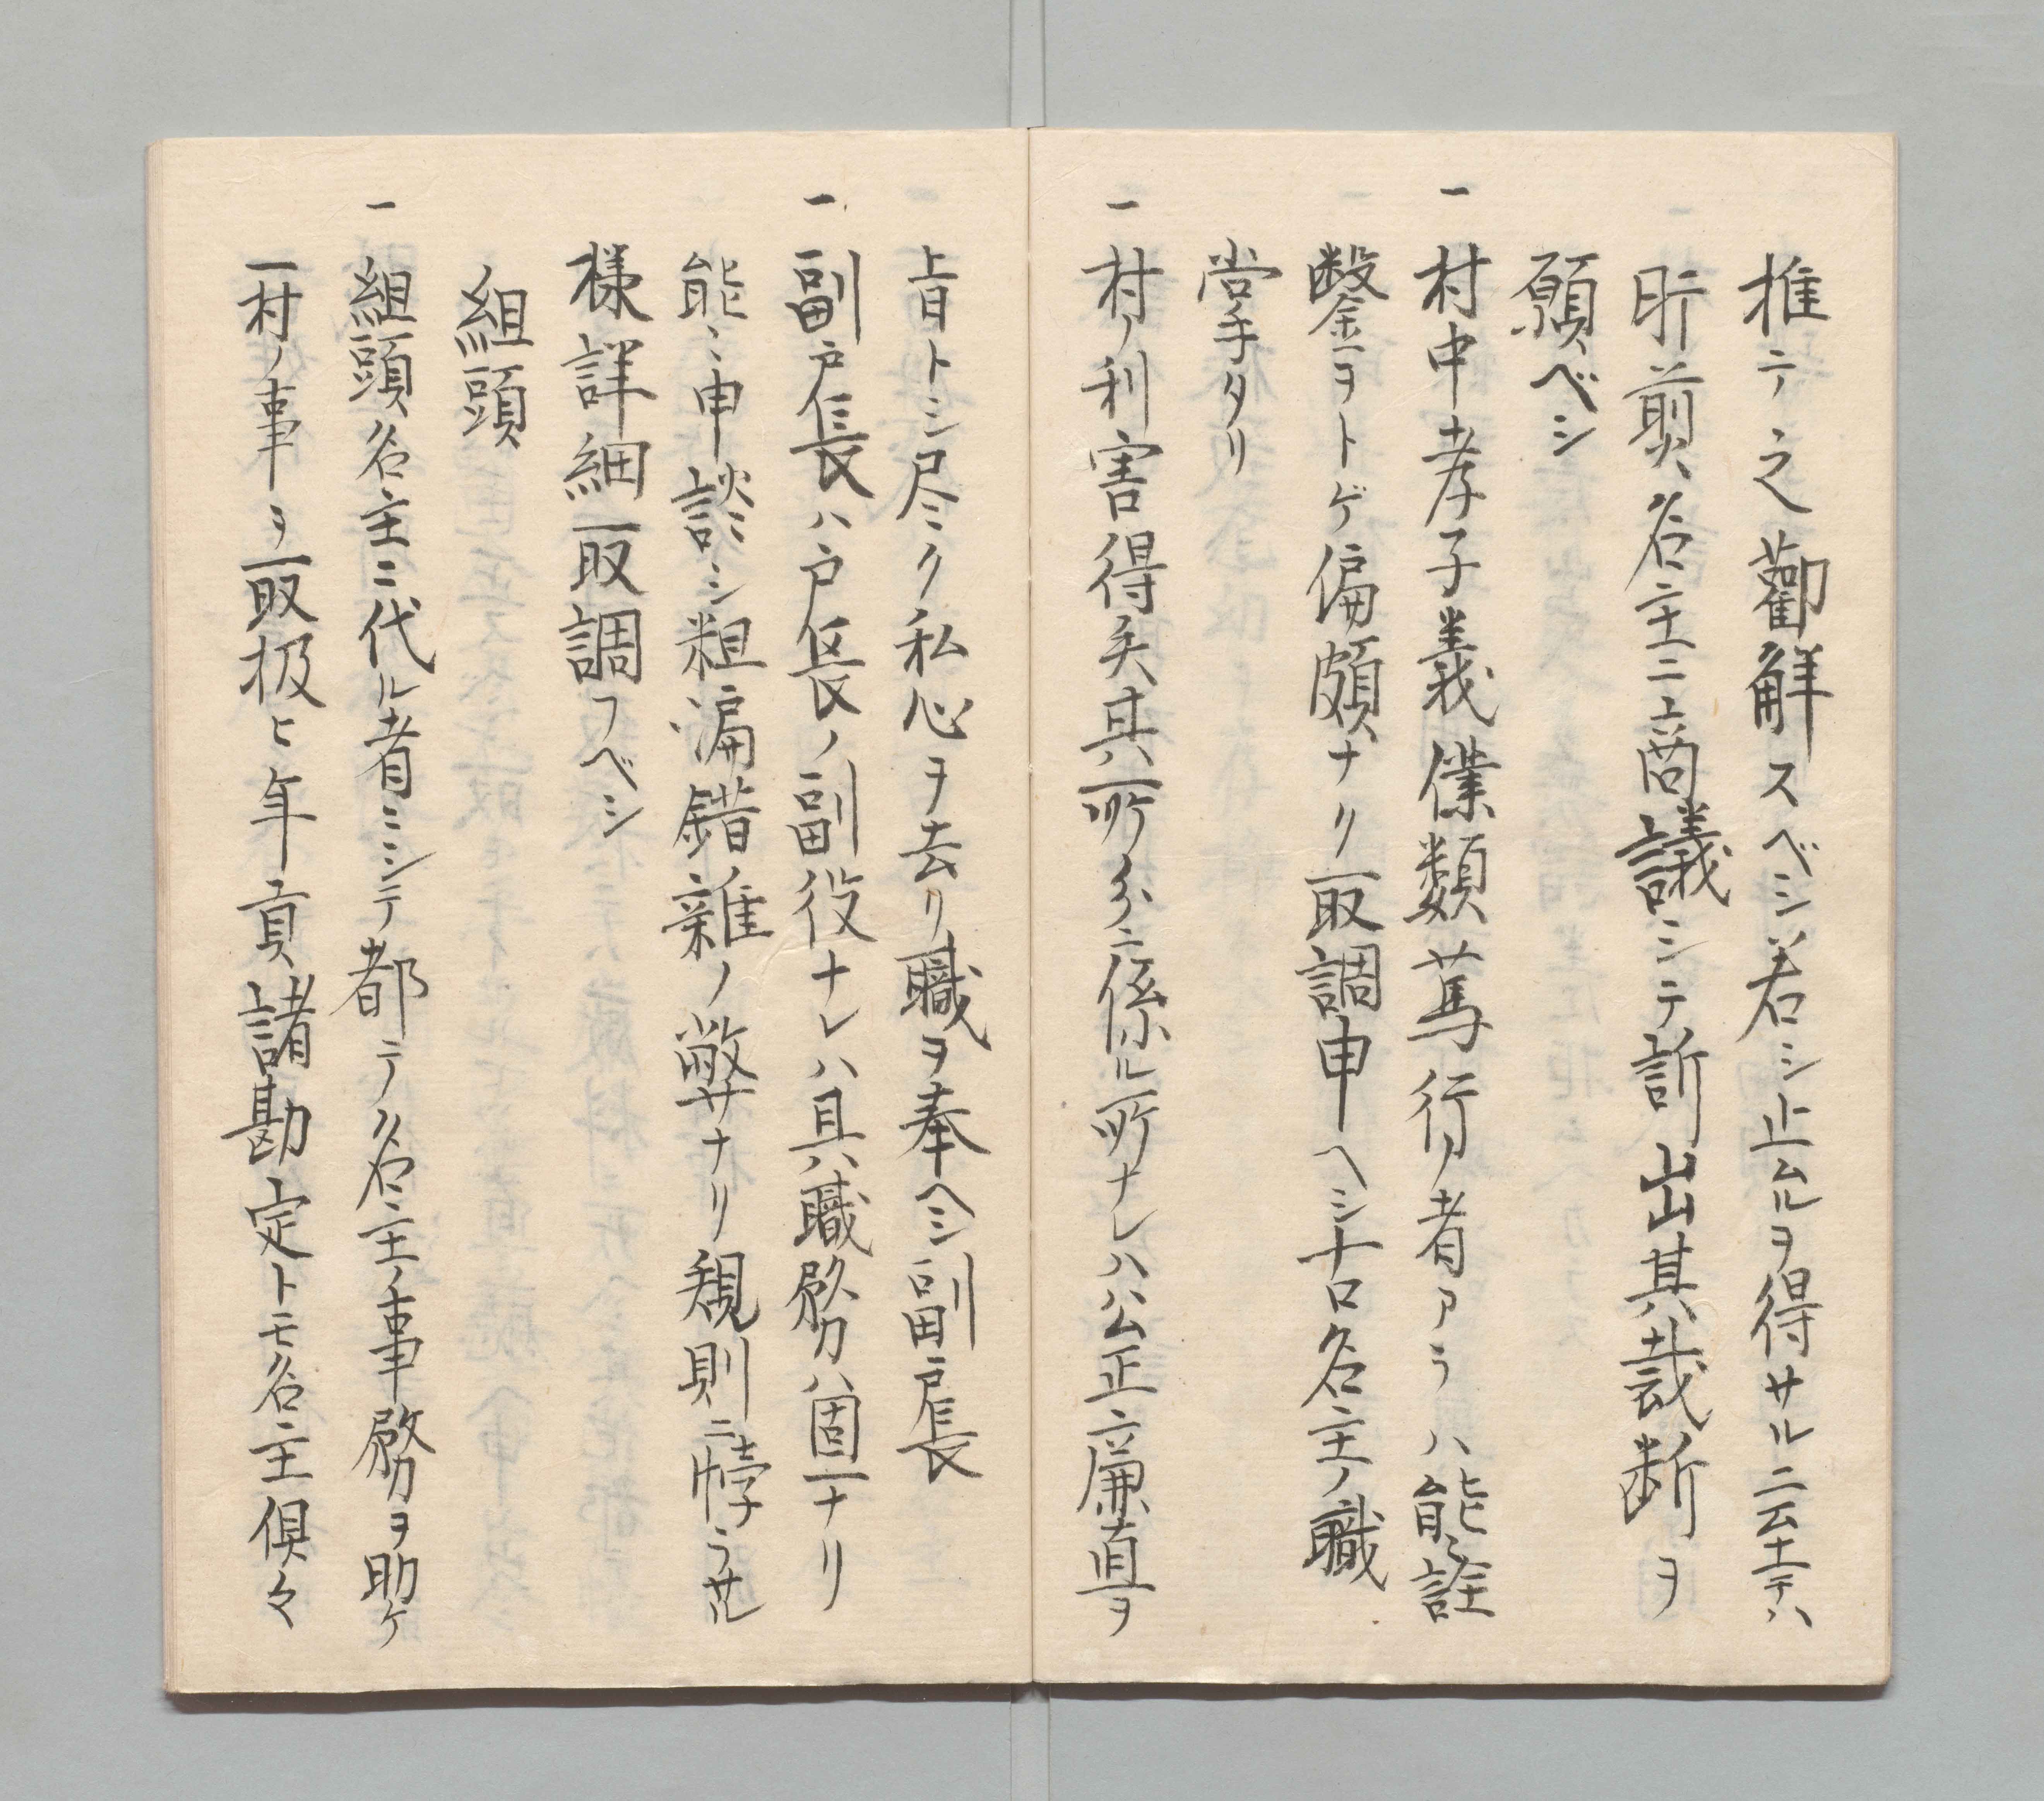 推テ之勸解スベシ若シ止ムルヲ得サルニ至テハ
所前名主ニ商議シテ訴出其裁断ヲ
願ベシ
一 村中孝子義僕類篤行ノ者アラハ能詮
鑿ヲトゲ偏頗ナク取調申ヘシ古名主ノ職
掌タリ
一 村ノ利害得失其所分ニ係ル所ナレハ公正廉直ヲ
旨トシ尽ク私心ヲ去リ職ヲ奉ヘシ副戸長
一 副戸長ハ戸長ノ副役ナレハ具職務ハ固一ナリ
能ニ申談シ粗漏錯雜ノ弊ナリ規則ニ悖ラサル
様詳細取調フベシ
組頭
一 組頭名主ニ代ル者ニシテ都テ名主ノ事務ヲ助ケ
一村ノ事ヲ取扱ヒ年貢諸勘定トモ名主倶々